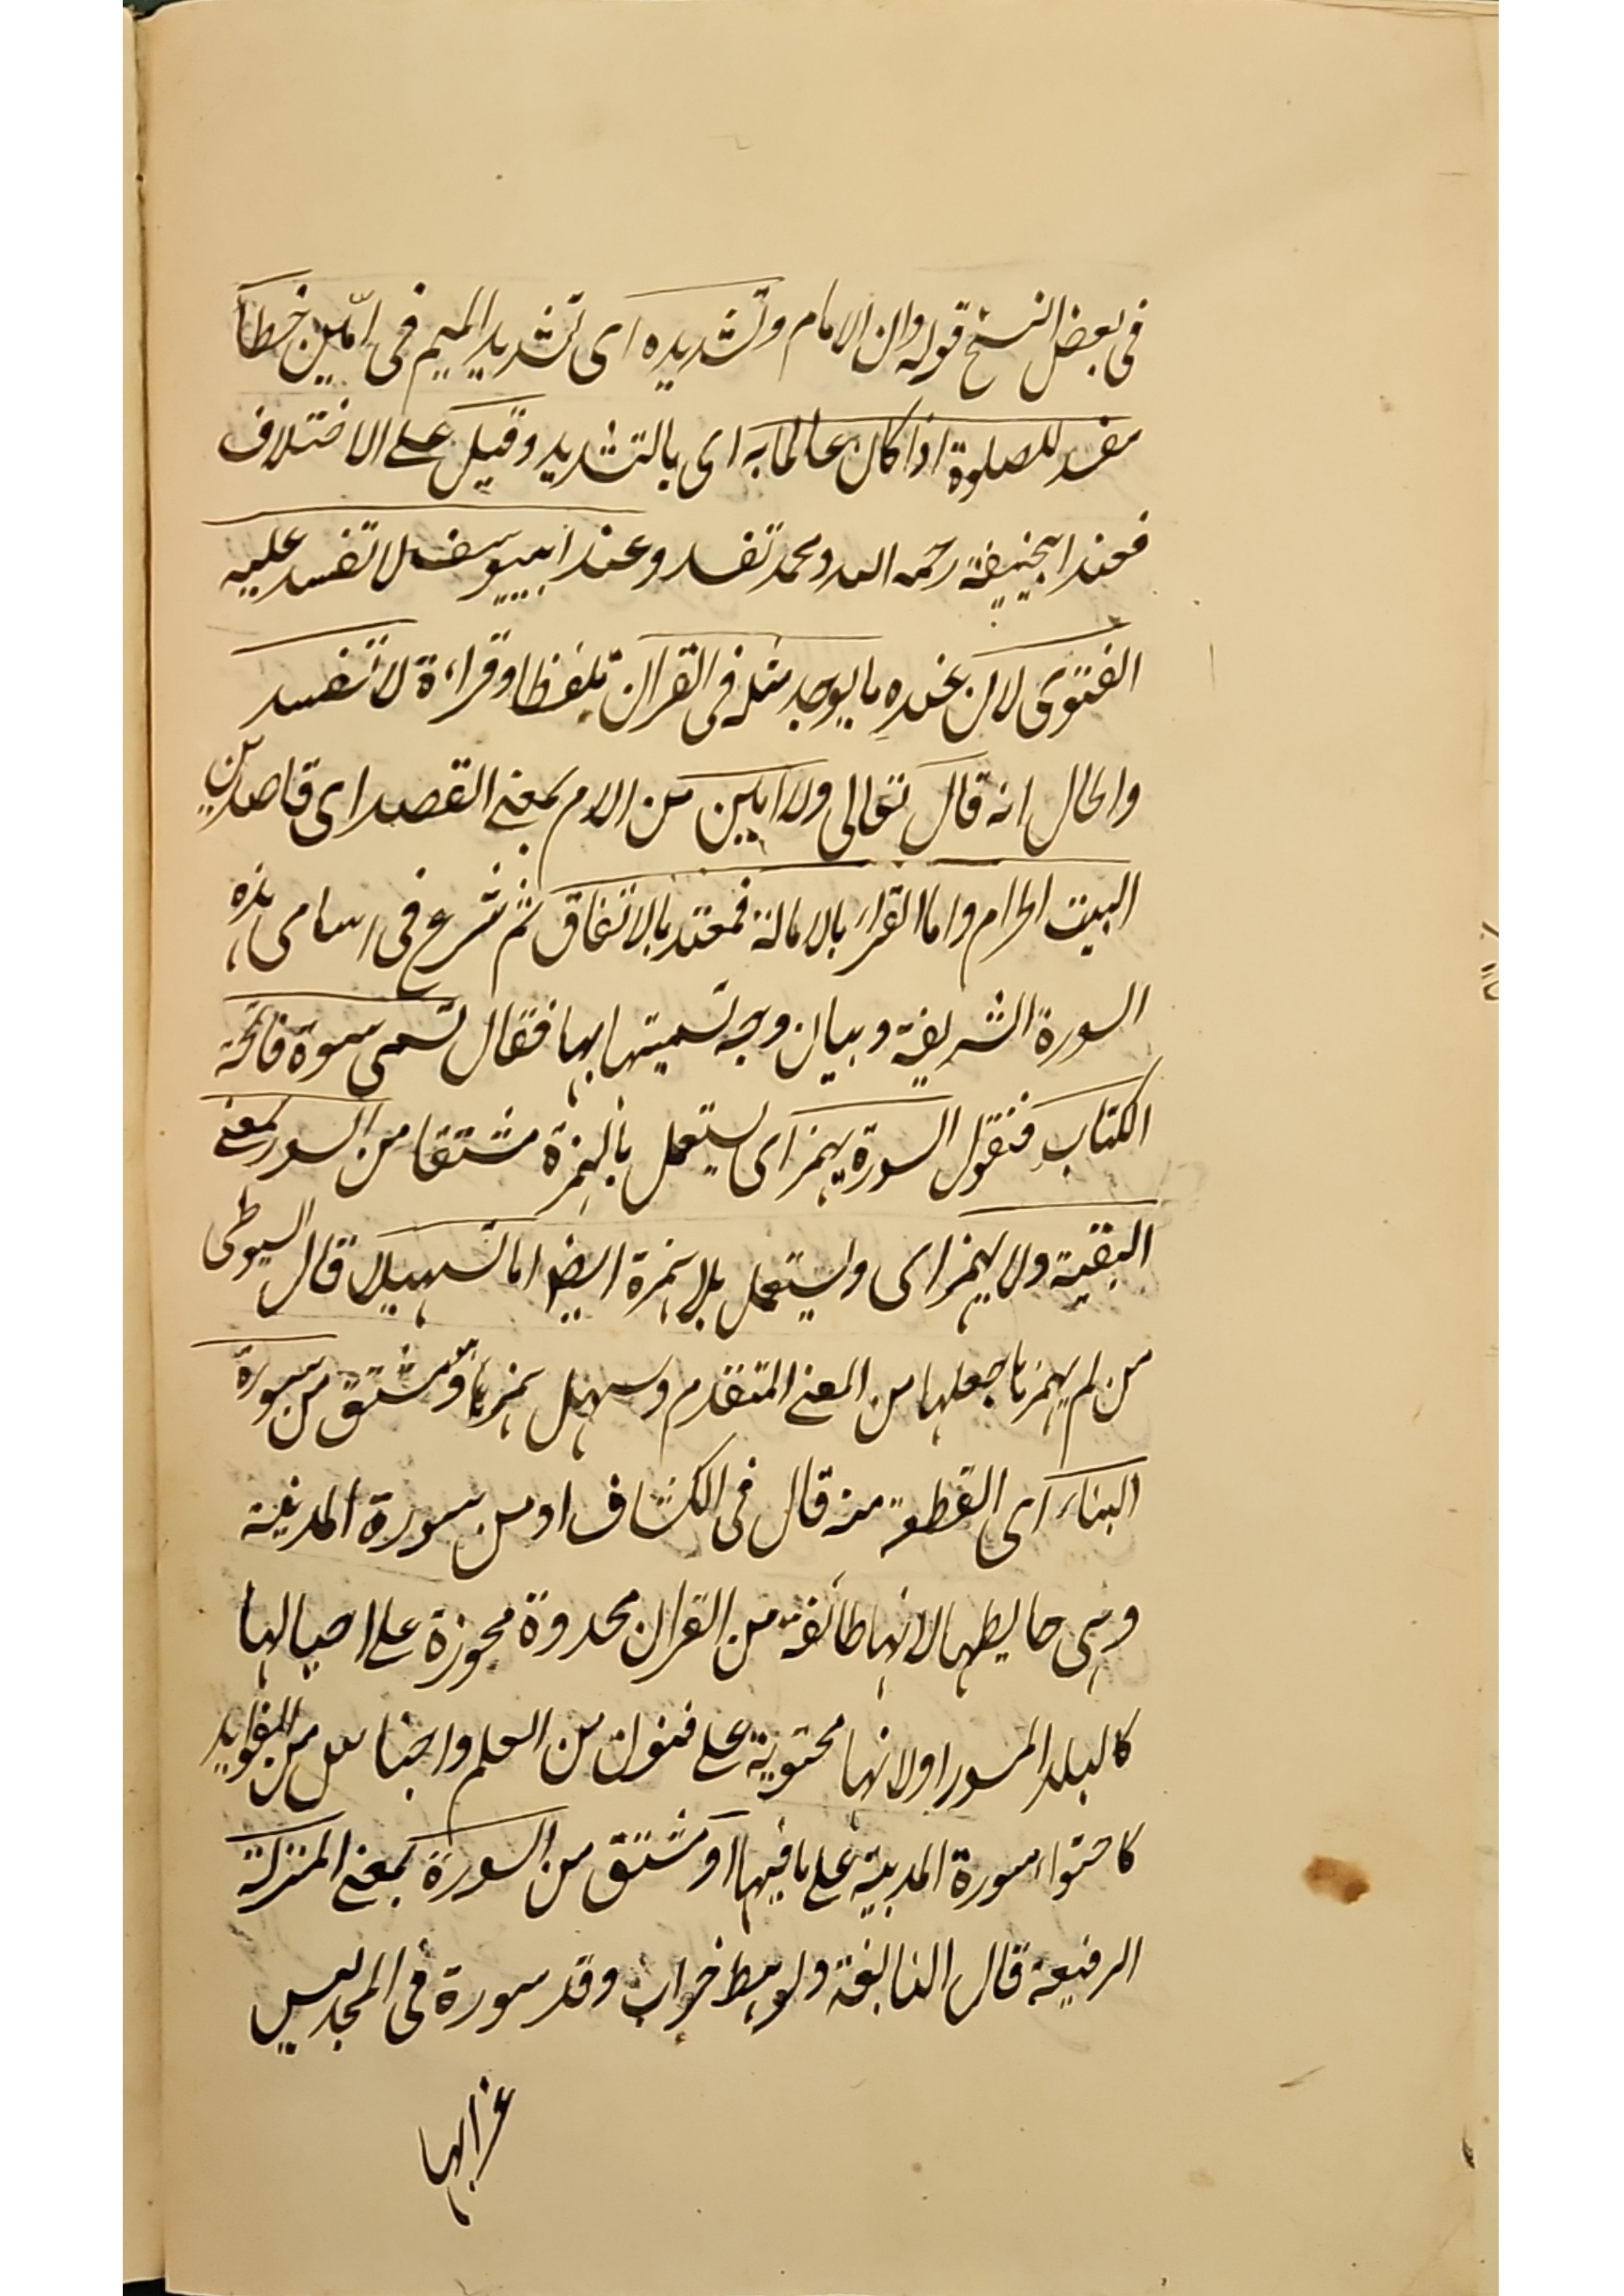 فى بعض النسخ قوله وان الامام وتشديده اى تشديد الميم فى امّين خطأ
مفسد للصلوة اذا كان عالما به اى بالتشديد وقيل على الاختلاف
فعند ابيحنيفة رحمه الله ومحمد تفسد وعند ابييوسف لا تفسد عليه
الفتوى لان عنده ما يوجد مثله فى القران تلفظا وقراءة لا تفسد
والحال انه قال تعالى ولا امين من الام بمعنى القصد اى قاصدين
البيت الحرام واما القراء بالامالة فمعتد بالاتفاق ثم شرع فى اسامى هذه
السورة الشريفة وبيان وجه تسميتها بها فقال تسمى سورة فاتحة
الكتاب فنقول السورة يهمز اى يستعمل بالهمزة مشتقا من السور بمعنى
البقية ولا يهمز اى ويستعمل بلا همزة ايضا اما تسهيلا قال السيوطى
من لم يهمزها جعلها من المعنى المتقدم وسهل همزها ومشتق من سورة
البناء اى القطعة منه قال فى الكشاف او من سورة المدينة
وهى حايطها لانها طائفة من القران محدودة محوزة على احيالها
كالبلد المسور او لانها محتوية على فنون من العلم واجناس من الفوايد
كاحتواء سورة المدينة على ما فيها او مشتق من السورة بمعنى المنزلة
الرفيعة قال النابغة ولرهط خراب وقد سورة فى المجد ليس
غرابها